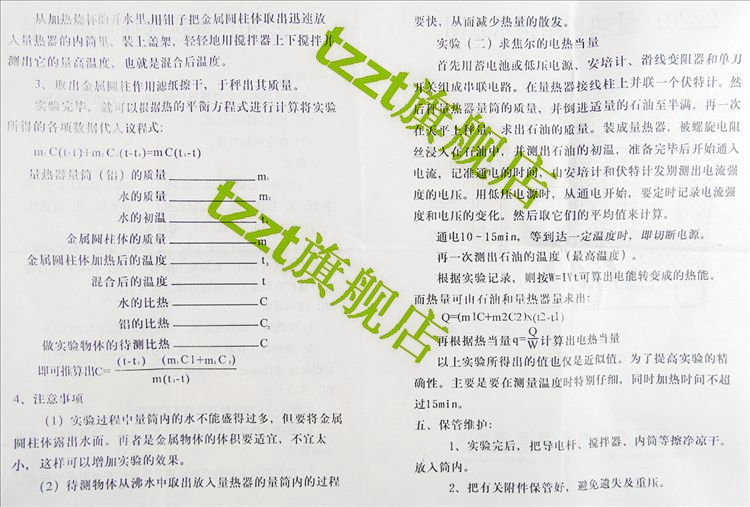 从加热烧杯的开水里,用钳子把金属圆柱体取出迅速放
入量热器的内筒里，装上盖架，轻轻地用搅拌器上下搅拌并
测出它的最高温度，也就是混合后温度。
3、取出金属圆柱作用滤纸擦干，于秤出其质量。
实验完毕，就可以根据热的平衡方程式进行计算将实验
所得的各项数据代入议程式:
m₁C(t-t)+m₂C₂(t-t₁)=mC(t₃-t)
量热器量筒（铝）的质量 m₁
水的质量 m₂
水的初温 t₁
金属圆柱体的质量 m
金属圆柱体加热后的温度 t₃
混合后的温度 t
水的比热 C
铝的比热 C₂
做实验物体的待测比热 C
即可推算出C= (t-t₁) (m₁C1+m₂C₂)
m(t₃-t)
4、注意事项
(1) 实验过程中量筒内的水不能盛得过多，但要将金属
圆柱体露出水面。再者是金属物体的体积要适宜，不宜太
小，这样可以增加实验的效果。
(2) 待测物体从沸水中取出放入量热器的量筒内的过程
要快，从而减少热量的散发。
实验（二）求焦尔的电热当量
首先用蓄电池或低压电源、安培计、滑线变阻器和单刀
开关组成串联电路。在量热器接线柱上并联一个伏特计。然
后秤量热器量筒的质量，并倒进适量的石油至半满，再一次
在天平上秤量，求出石油的质量。装成量热器，被螺旋电阻
丝浸入在石油中，并测出石油的初温，准备完毕后开始通入
电流，记准通电的时间，由安培计和伏特计发别测出电流强
度的电压。用低压电源时，从通电开始，要定时记录电流强
度和电压的变化。然后取它们的平均值来计算。
通电10～15min，等到达一定温度时，即切断电源。
再一次测出石油的温度（最高温度）。
根据实验记录，则按W=IVt可算出电能转变成的热能。
而热量可由石油和量热器量求出:
Q=(m1C+m2C2)x(t2-t1)
再根据热当量q=Q/W计算出电热当量
以上实验所得出的值也仅是近似值。为了提高实验的精
确性。主要是要在测量温度时特别仔细，同时加热时间不超
过15min。
五、保管维护:
1、实验完后，把导电杆、搅拌器、内筒等擦净凉干。
放入筒内。
2、把有关附件保管好，避免遗失及重压。
tzzt旗舰店
tzzt旗舰店